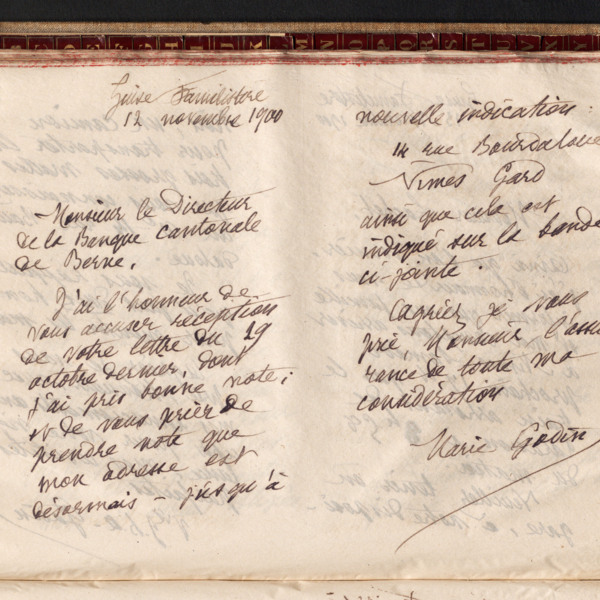 Guise Familistère
12 novembre 1900
Monsieur le Directeur
de la Banque cantonale
de Berne.
J'ai l'honneur de
vous accuser réception
de votre lettre du 29
octobre dernier, dont
j'ai pris bonne note;
et de vous prier de
prendre note que
mon adresse est
désormais – jusqu'à
nouvelle indication:
14 rue Bourdaloue
Nîmes Gard
ainsi que cela est
indiqué sur la bande
ci-jointe.
Agréez je vous
prie, Monsieur l'assu
rance de toute ma
considération
Marie Godin